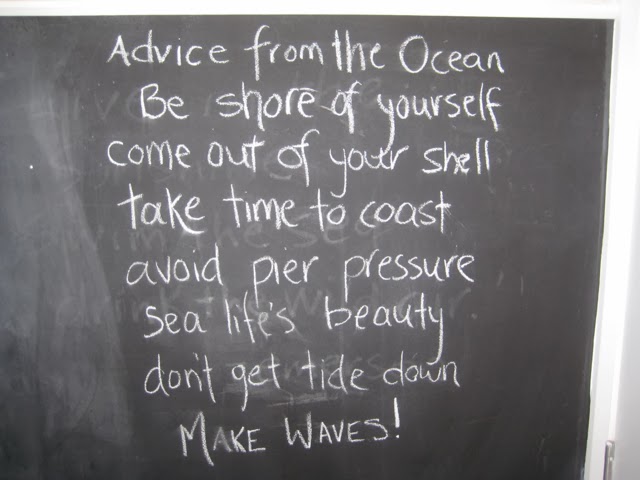 Advice from the Ocean
Be shore of yourself
come out of your shell
take time to coast
avoid pier pressure
sea life's beauty
don't get tide down
MAKE WAVES!